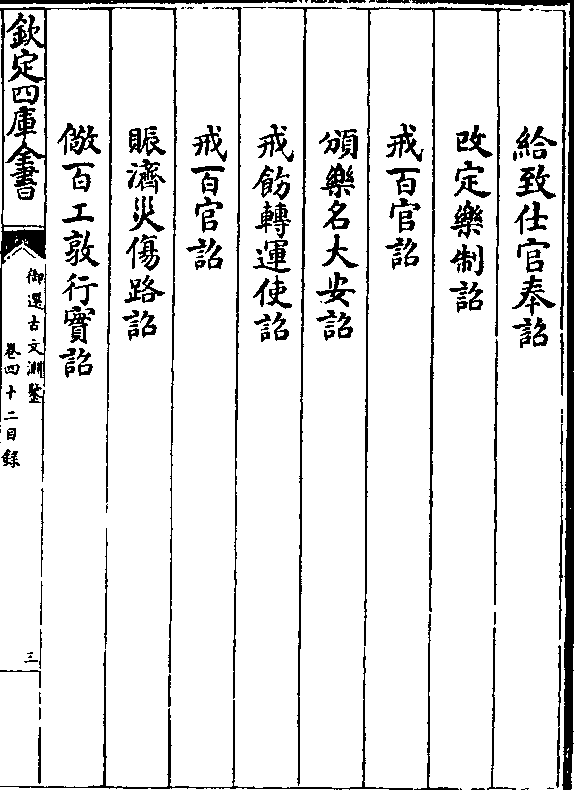 給致仕官奉詔
改定樂制詔
戒百官詔
頒樂名大安詔
戒飭轉運使詔
戒百官詔
賑濟災傷路詔
儆百工敦行實詔
欽定四庫全書
御選古文淵鑒
卷四十二目錄
三